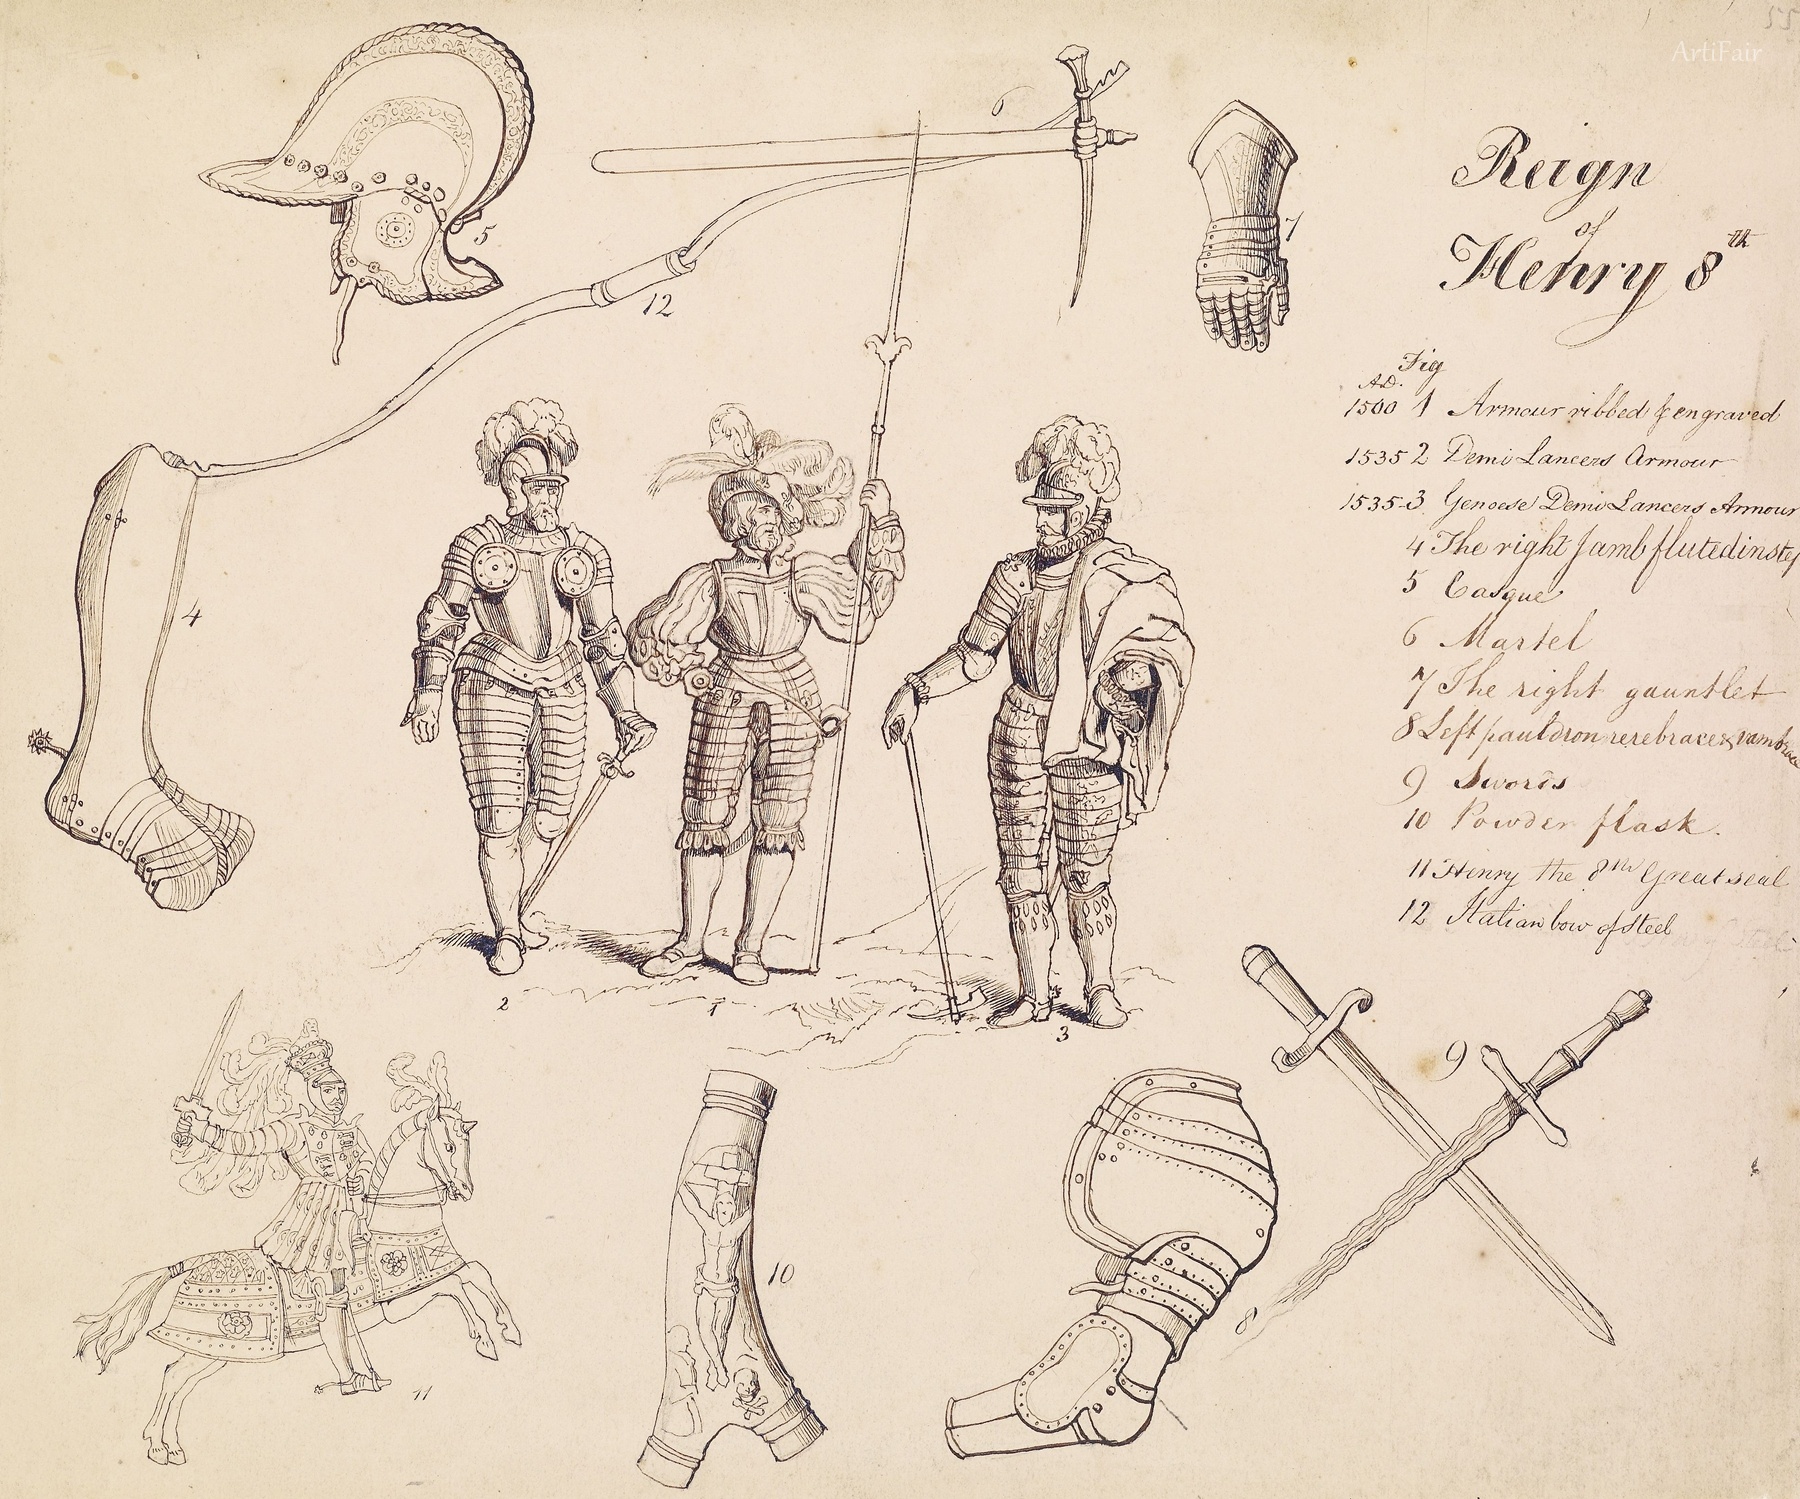 ArtiFair
Reign
of
Henry 8th
Fig
A.D.
1500 1 Armour ribbed & engraved
1535 2 Demi Lancers Armour
1535-3 Genoese Demi Lancers Armour
4 The right Jamb fluted instep
5 Casque
6 Martel
7 The right gauntlet
8 Left pauldron rerebrace & vambrace
9 Swords
10 Powder flask.
11 Henry the 8th Great seal
12 Italian bow of steel
6
5
7
12
4
2
1
3
9
10
8
11